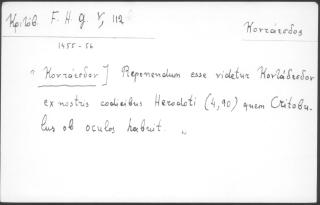 Κριτόβ. F. H. G. V, 112
Κοντάεσδος
1455-56
" Κοντάεσδον] Reponendum esse videtur Κοντάδεσδον
ex nostris codicibus Herodoti (4,90) quem Critobu-
lus ob oculos habuit. "